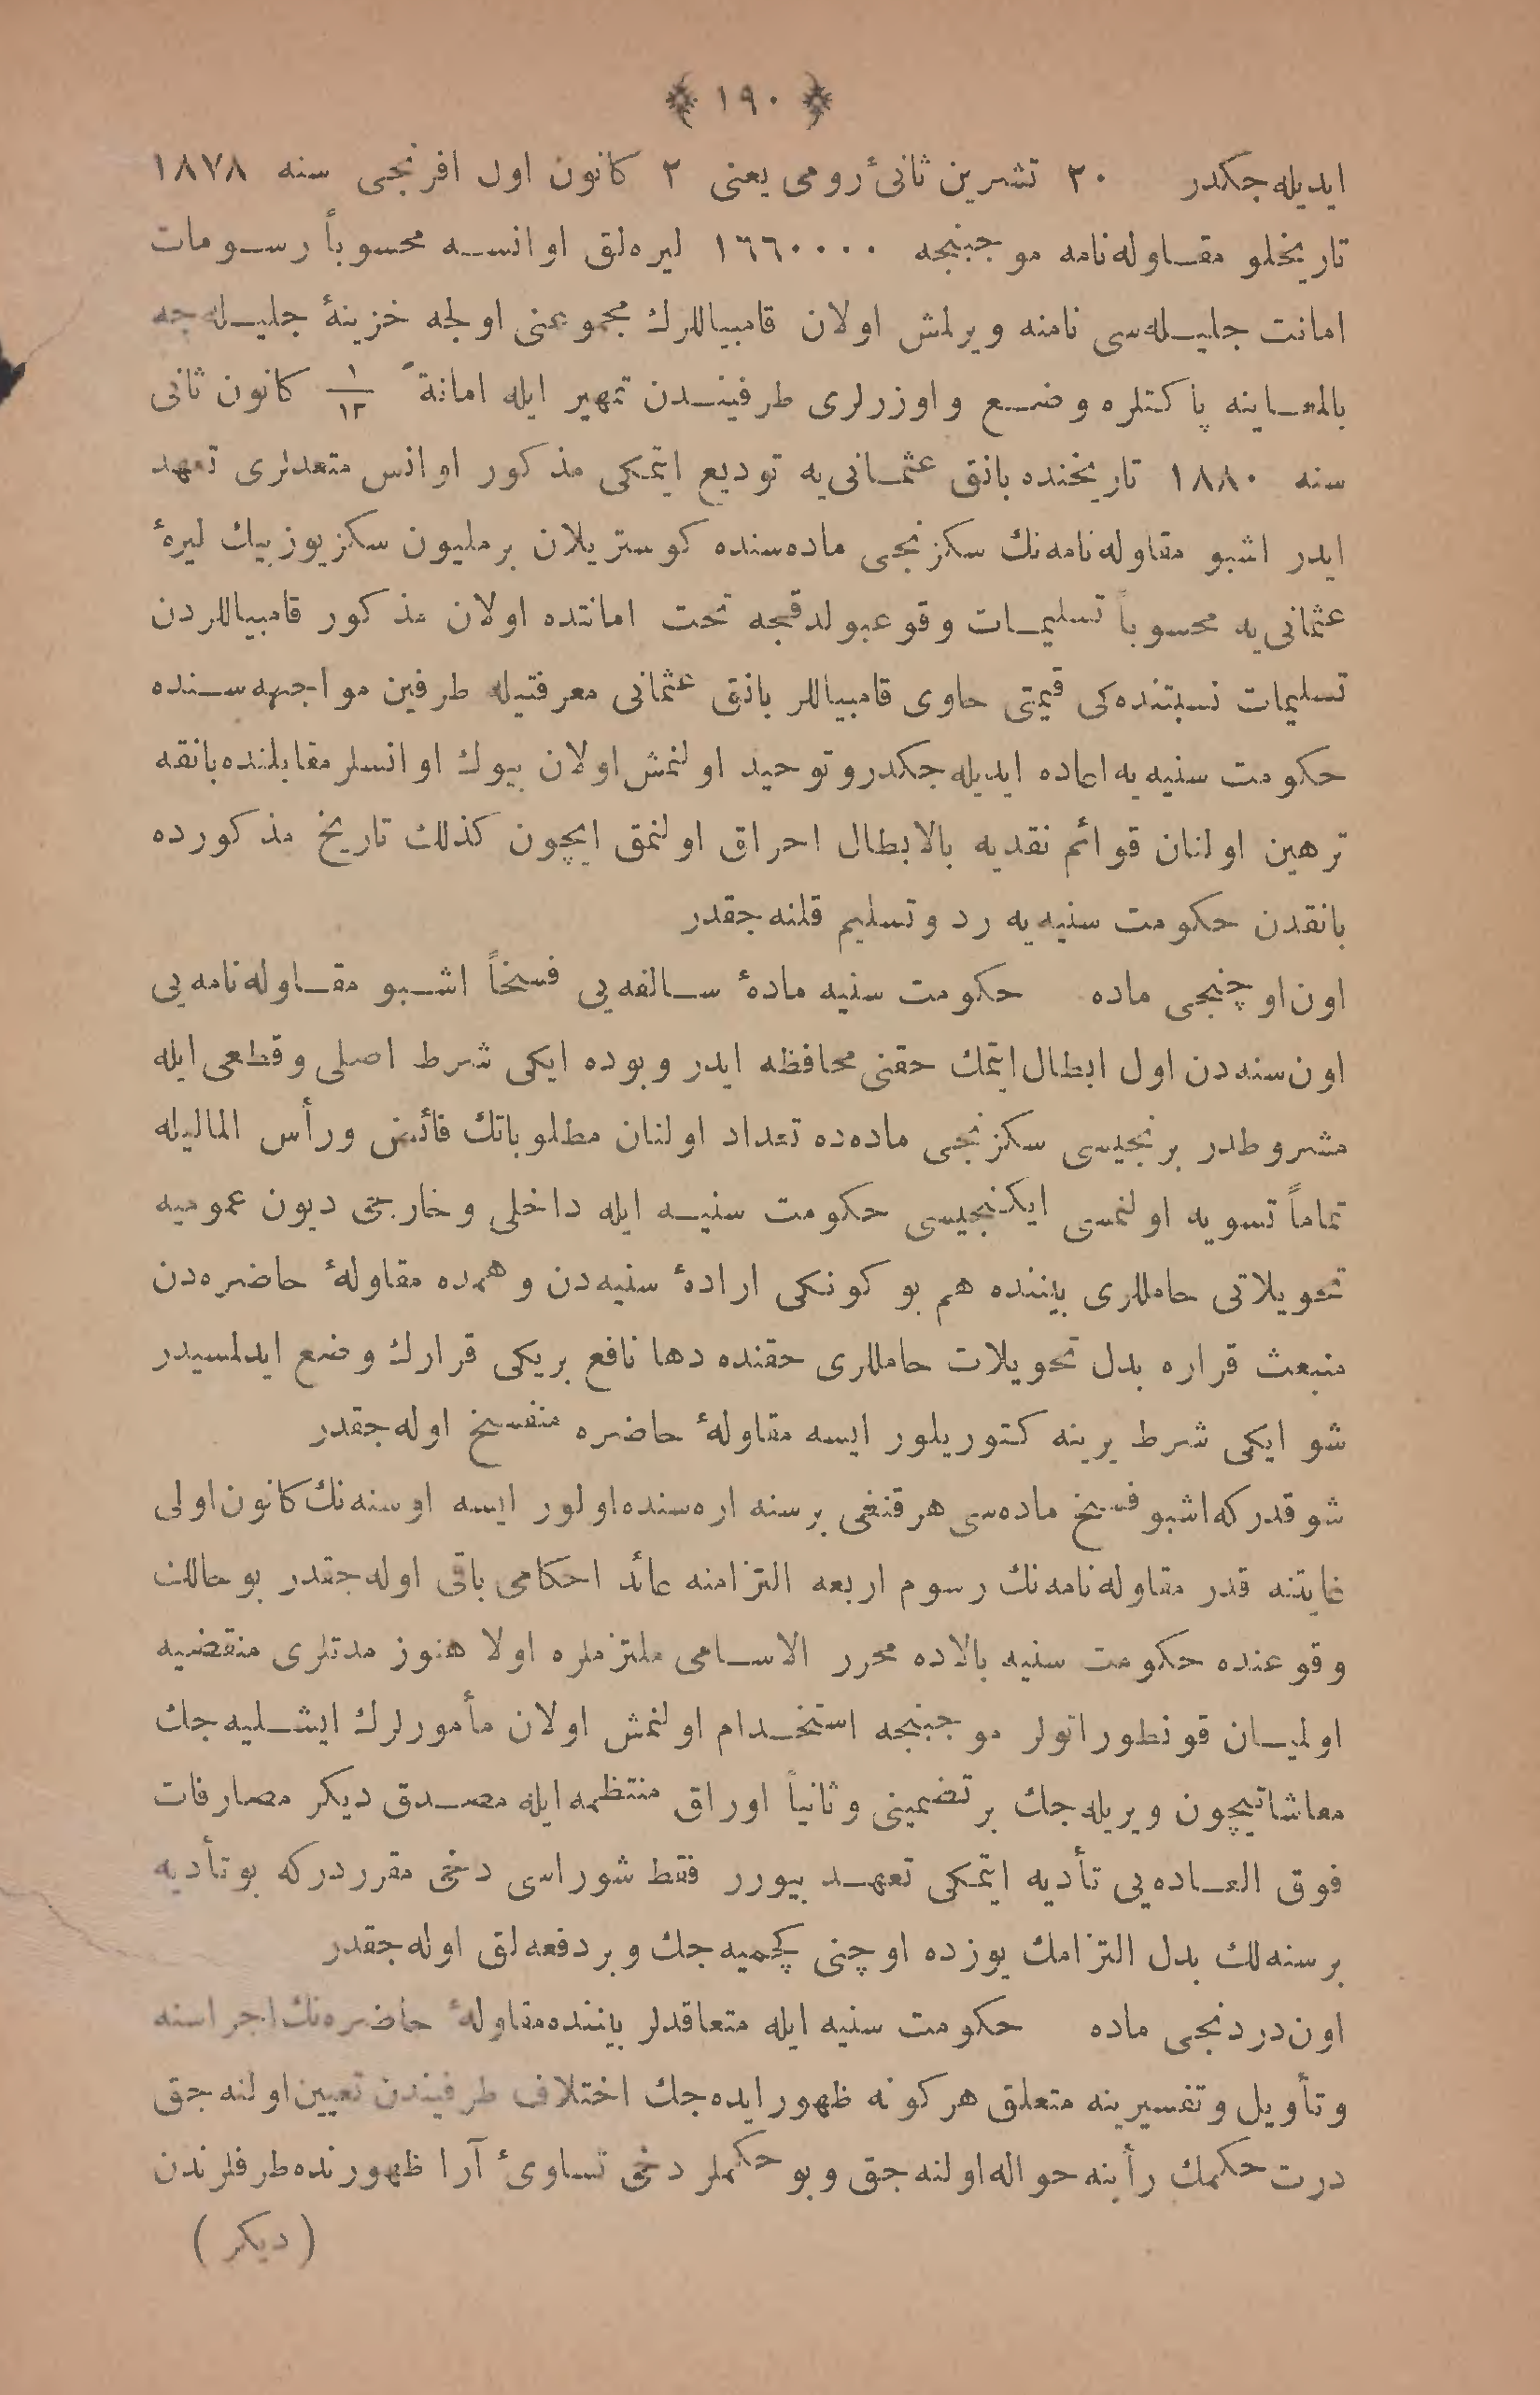 ﴿ ١٩٠ ﴾
ايديله‌جكدر ٢٠ تشرين ثانیٔ رومى يعنى ٢ كانون اول افرنجى سنه ١٨٧٨
تاريخلو مقاوله‌نامه موجبنجه ١٦٦٠٠٠٠ ليره‌لق اوانسه محسوباً رسومات
امانت جليله‌سى نامنه ويرلمش اولان قامبياللرك مجموعنى اولجه خزينهٔ جليله‌جه
بالمعاينه پاكتلره وضع و اوزرلرى طرفيندن تمهير ايله امانةً ١/١٣ كانون ثانى
سنه ١٨٨٠ تاريخنده بانق عثمانى‌يه توديع ايتمكى مذكور اوانس متعدلرى تعهد
ايدر اشبو مقاوله‌نامه‌نك سكزنجى ماده‌سنده كوستريلان برمليون سكزيوزبيك ليرهٔ
عثمانى‌يه محسوباً تسليمات وقوعبولدقجه تحت امانتده اولان مذكور قامبياللردن
تسليمات نسبتنده‌كى قيمتى حاوى قامبياللر بانق عثمانى معرفتيله طرفين مواجهه‌سنده
حكومت سنيه‌يه اعاده ايديله‌جكدر و توحيد اولنمش اولان بيوك اوانسلر مقابلنده بانقه
ترهين اولنان قوائم نقديه بالابطال احراق اولنمق ايچون كذلك تاريخ مذكورده
بانقدن حكومت سنيه‌يه رد و تسليم قلنه‌جقدر
اون اوچنجى ماده حكومت سنيه مادهٔ سالفه‌يى فسخاً اشبو مقاوله‌نامه‌يى
اون سنه‌دن اول ابطال ايتمك حقنى محافظه ايدر و بوده ايكى شرط اصلى و قطعى ايله
مشروطدر برنجيسى سكزنجى ماده‌ده تعداد اولنان مطلوباتك فائض و رأس الماليله
تماماً تسويه اولنمسى ايكنجيسى حكومت سنيه ايله داخلى و خارجى ديون عموميه
تحويلاتى حامللرى بيننده هم بو كونكى ارادهٔ سنيه‌دن و همده مقاولهٔ حاضره‌دن
منبعث قراره بدل تحويلات حامللرى حقنده دها نافع بريكى قرارك وضع ايدلمسيدر
شو ايكى شرط يرينه كتوريلور ايسه مقاولهٔ حاضره منفسخ اوله‌جقدر
شو قدركه اشبو فسخ ماده‌سى هر قنغى برسنه اره‌سنده اولور ايسه اوسنه‌نك كانون اولى
غايتنه قدر مقاوله‌نامه‌نك رسوم اربعه التزامنه عائد احكامى باقى اوله‌جقدر بو حالك
وقوعنده حكومت سنيه بالاده محرر الاسامى ملتزملره اولا هنوز مدتلرى منقضيه
اولميان قونطوراتولر موجبنجه استخدام اولنمش اولان مأمورلرك ايشليه‌جك
معاشاتيچون ويريله‌جك بر تضمينى و ثانياً اوراق منتظمه ايله مصدق ديكر مصارفات
فوق العاده‌يى تأديه ايتمكى تعهد بيورر فقط شوراسى دخى مقرردركه بو تأديه
برسنه‌لك بدل التزامك يوزده اوچنى كچميه‌جك و بر دفعه‌لق اوله‌جقدر
اون دردنجى ماده حكومت سنيه ايله متعاقدلر بيننده مقاولهٔ حاضره‌نك اجراسنه
و تأويل و تفسيرينه متعلق هركونه ظهور ايده‌جك اختلاف طرفيندن تعيين اولنه‌جق
درت حكمك رأينه حواله اولنه‌جق و بو حكملر دخى تساویٔ آرا ظهورنده طرفلرندن
( ديكر )